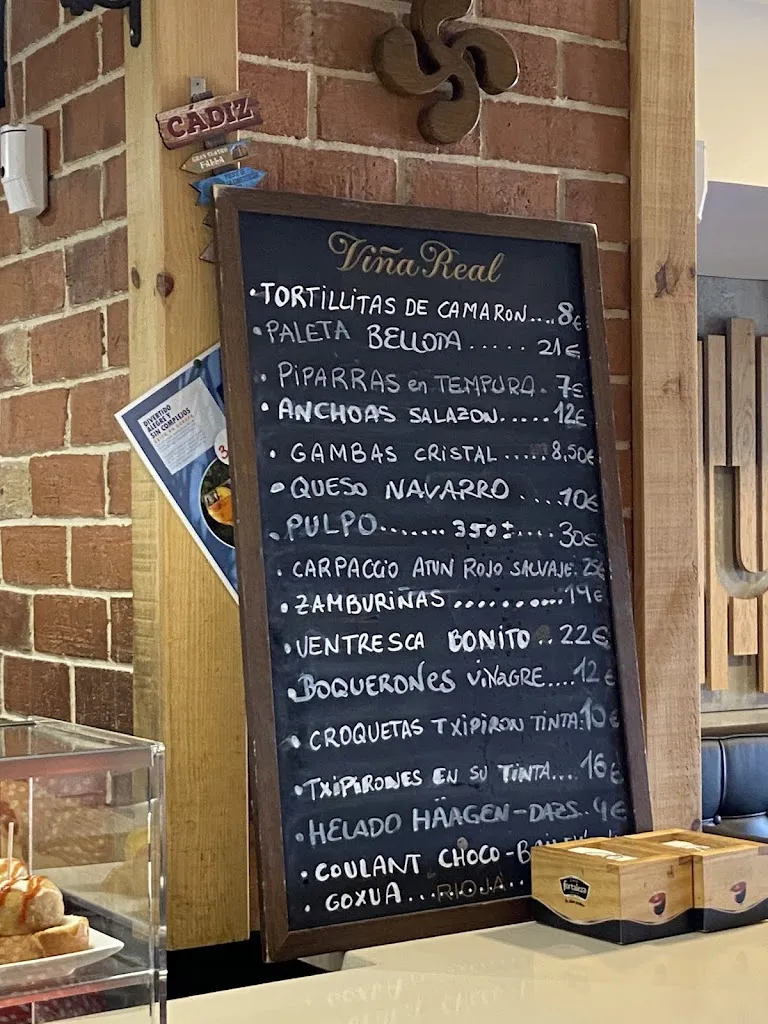 CÁDIZ
GRAN TEATRO
FALLA
DIVERTIDO
ALEGRE Y
SIN COMPLEJOS
Viña Real
• TORTILLITAS DE CAMARON.... 8€
• PALETA BELLOTA ..... 21€
• PIPARRAS en TEMPURA. 7€
• ANCHOAS SALAZON..... 12€
• GAMBAS CRISTAL ..... 8,50€
• QUESO NAVARRO .... 10€
• PULPO....... 350± .... 30€
• CARPACCIO ATUN ROJO SALVAJE. 25€
• ZAMBURIÑAS .......... 19€
• VENTRESCA BONITO .. 22€
• BOQUERONES VINAGRE.... 12€
• CROQUETAS TXIPIRON TINTA. 10€
• TXIPIRONES EN SU TINTA... 16€
• HELADO HÄAGEN-DAZS.. 4€
• COULANT CHOCO-
• GOXUA...
RIOJA
fortaleza